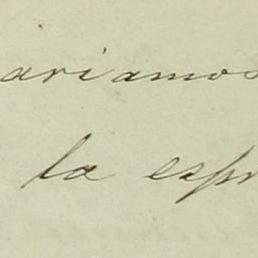 ariamos
la esp